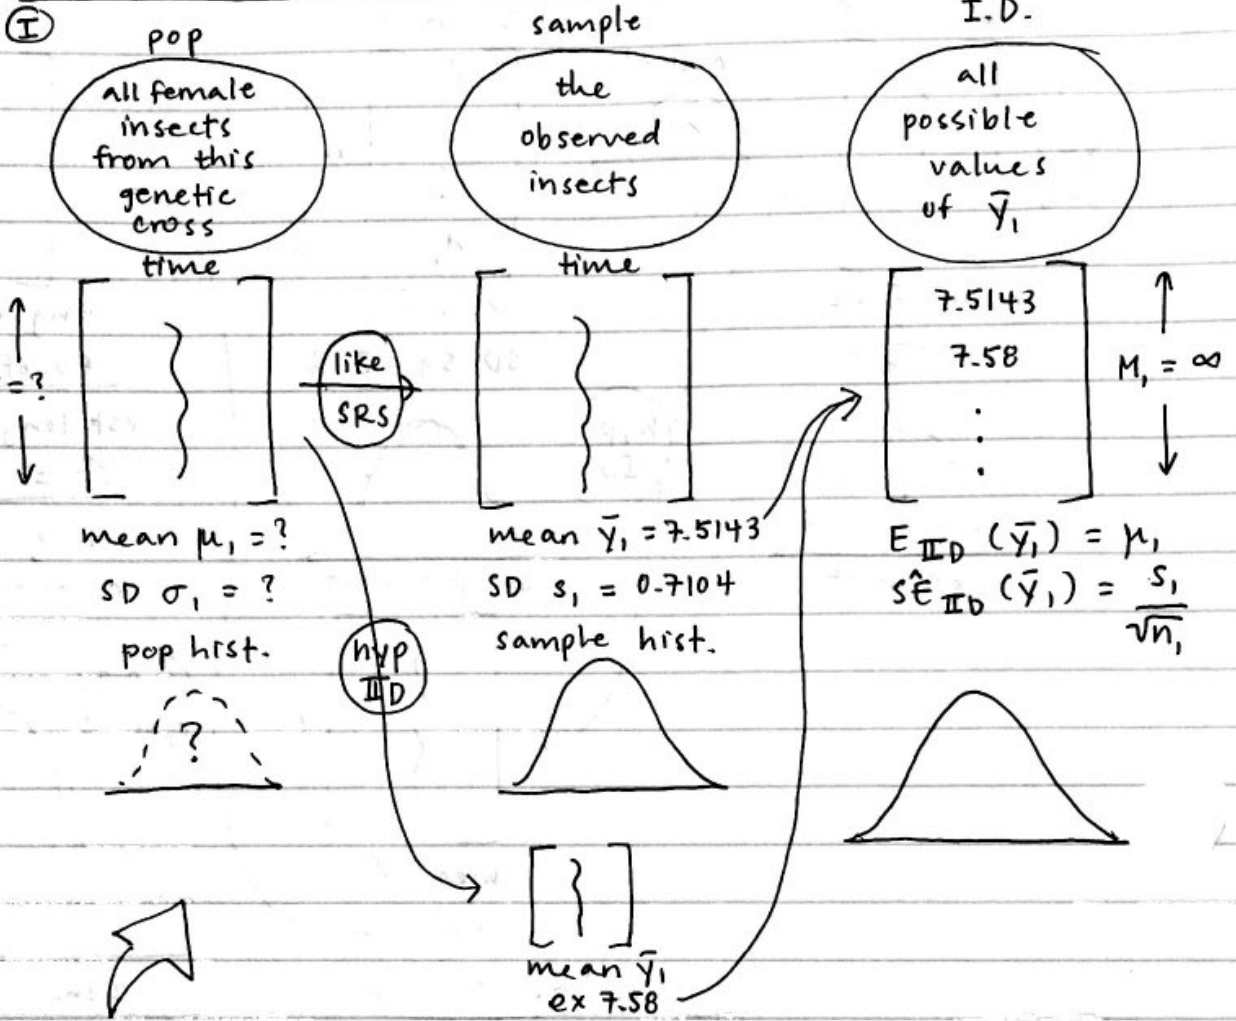 I
pop
all female
insects
from this
genetic
cross
time
= ?
mean μ₁ = ?
SD σ₁ = ?
pop hist.
?
like
SRS
hyp
IID
sample
the
observed
insects
time
mean ȳ₁ = 7.5143
SD s₁ = 0.7104
sample hist.
mean ȳ₁
ex 7.58
I.D.
all
possible
values
of ȳ₁
7.5143
7.58
.
.
.
M₁ = ∞
E IID (ȳ₁) = μ₁
SÊ IID (ȳ₁) = s₁/√n₁